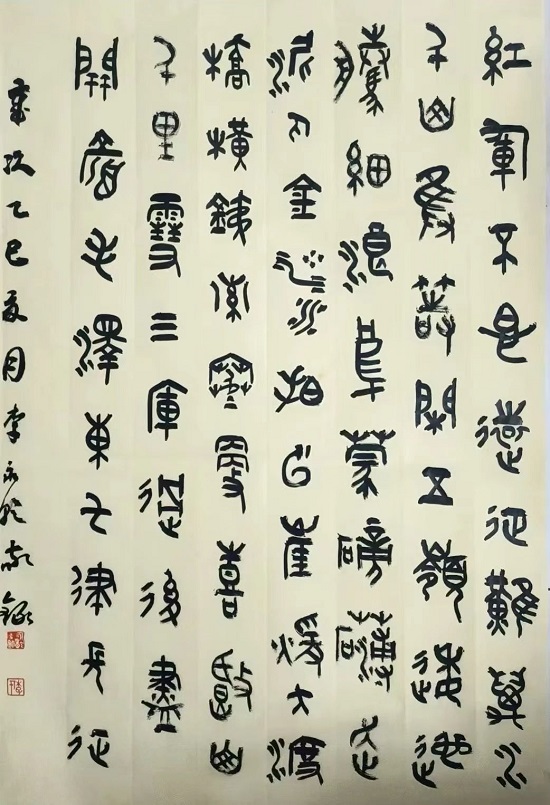 紅軍不怕遠征難萬水
千山只等閑五嶺逶迤
騰細浪烏蒙磅礴走
泥丸金沙水拍雲崖暖大渡
橋橫鐵索寒更喜岷山
千里雪三軍過後盡
開顏毛澤東七律長征
歲次乙巳夏月李永敬錄